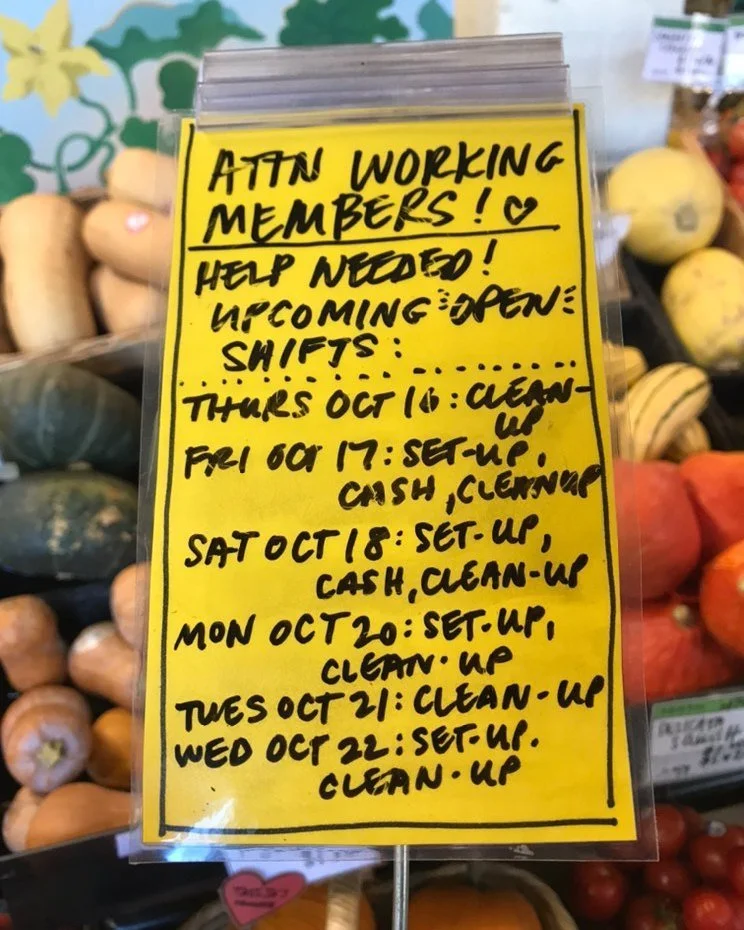 ATTN WORKING
MEMBERS! ♡
HELP NEEDED!
UPCOMING OPEN
SHIFTS:
THURS OCT 16: CLEAN-
UP
FRI OCT 17: SET-UP,
CASH, CLEANUP
SAT OCT 18: SET-UP,
CASH, CLEAN-UP
MON OCT 20: SET-UP,
CLEAN-UP
TUES OCT 21: CLEAN-UP
WED OCT 22: SET-UP.
CLEAN-UP